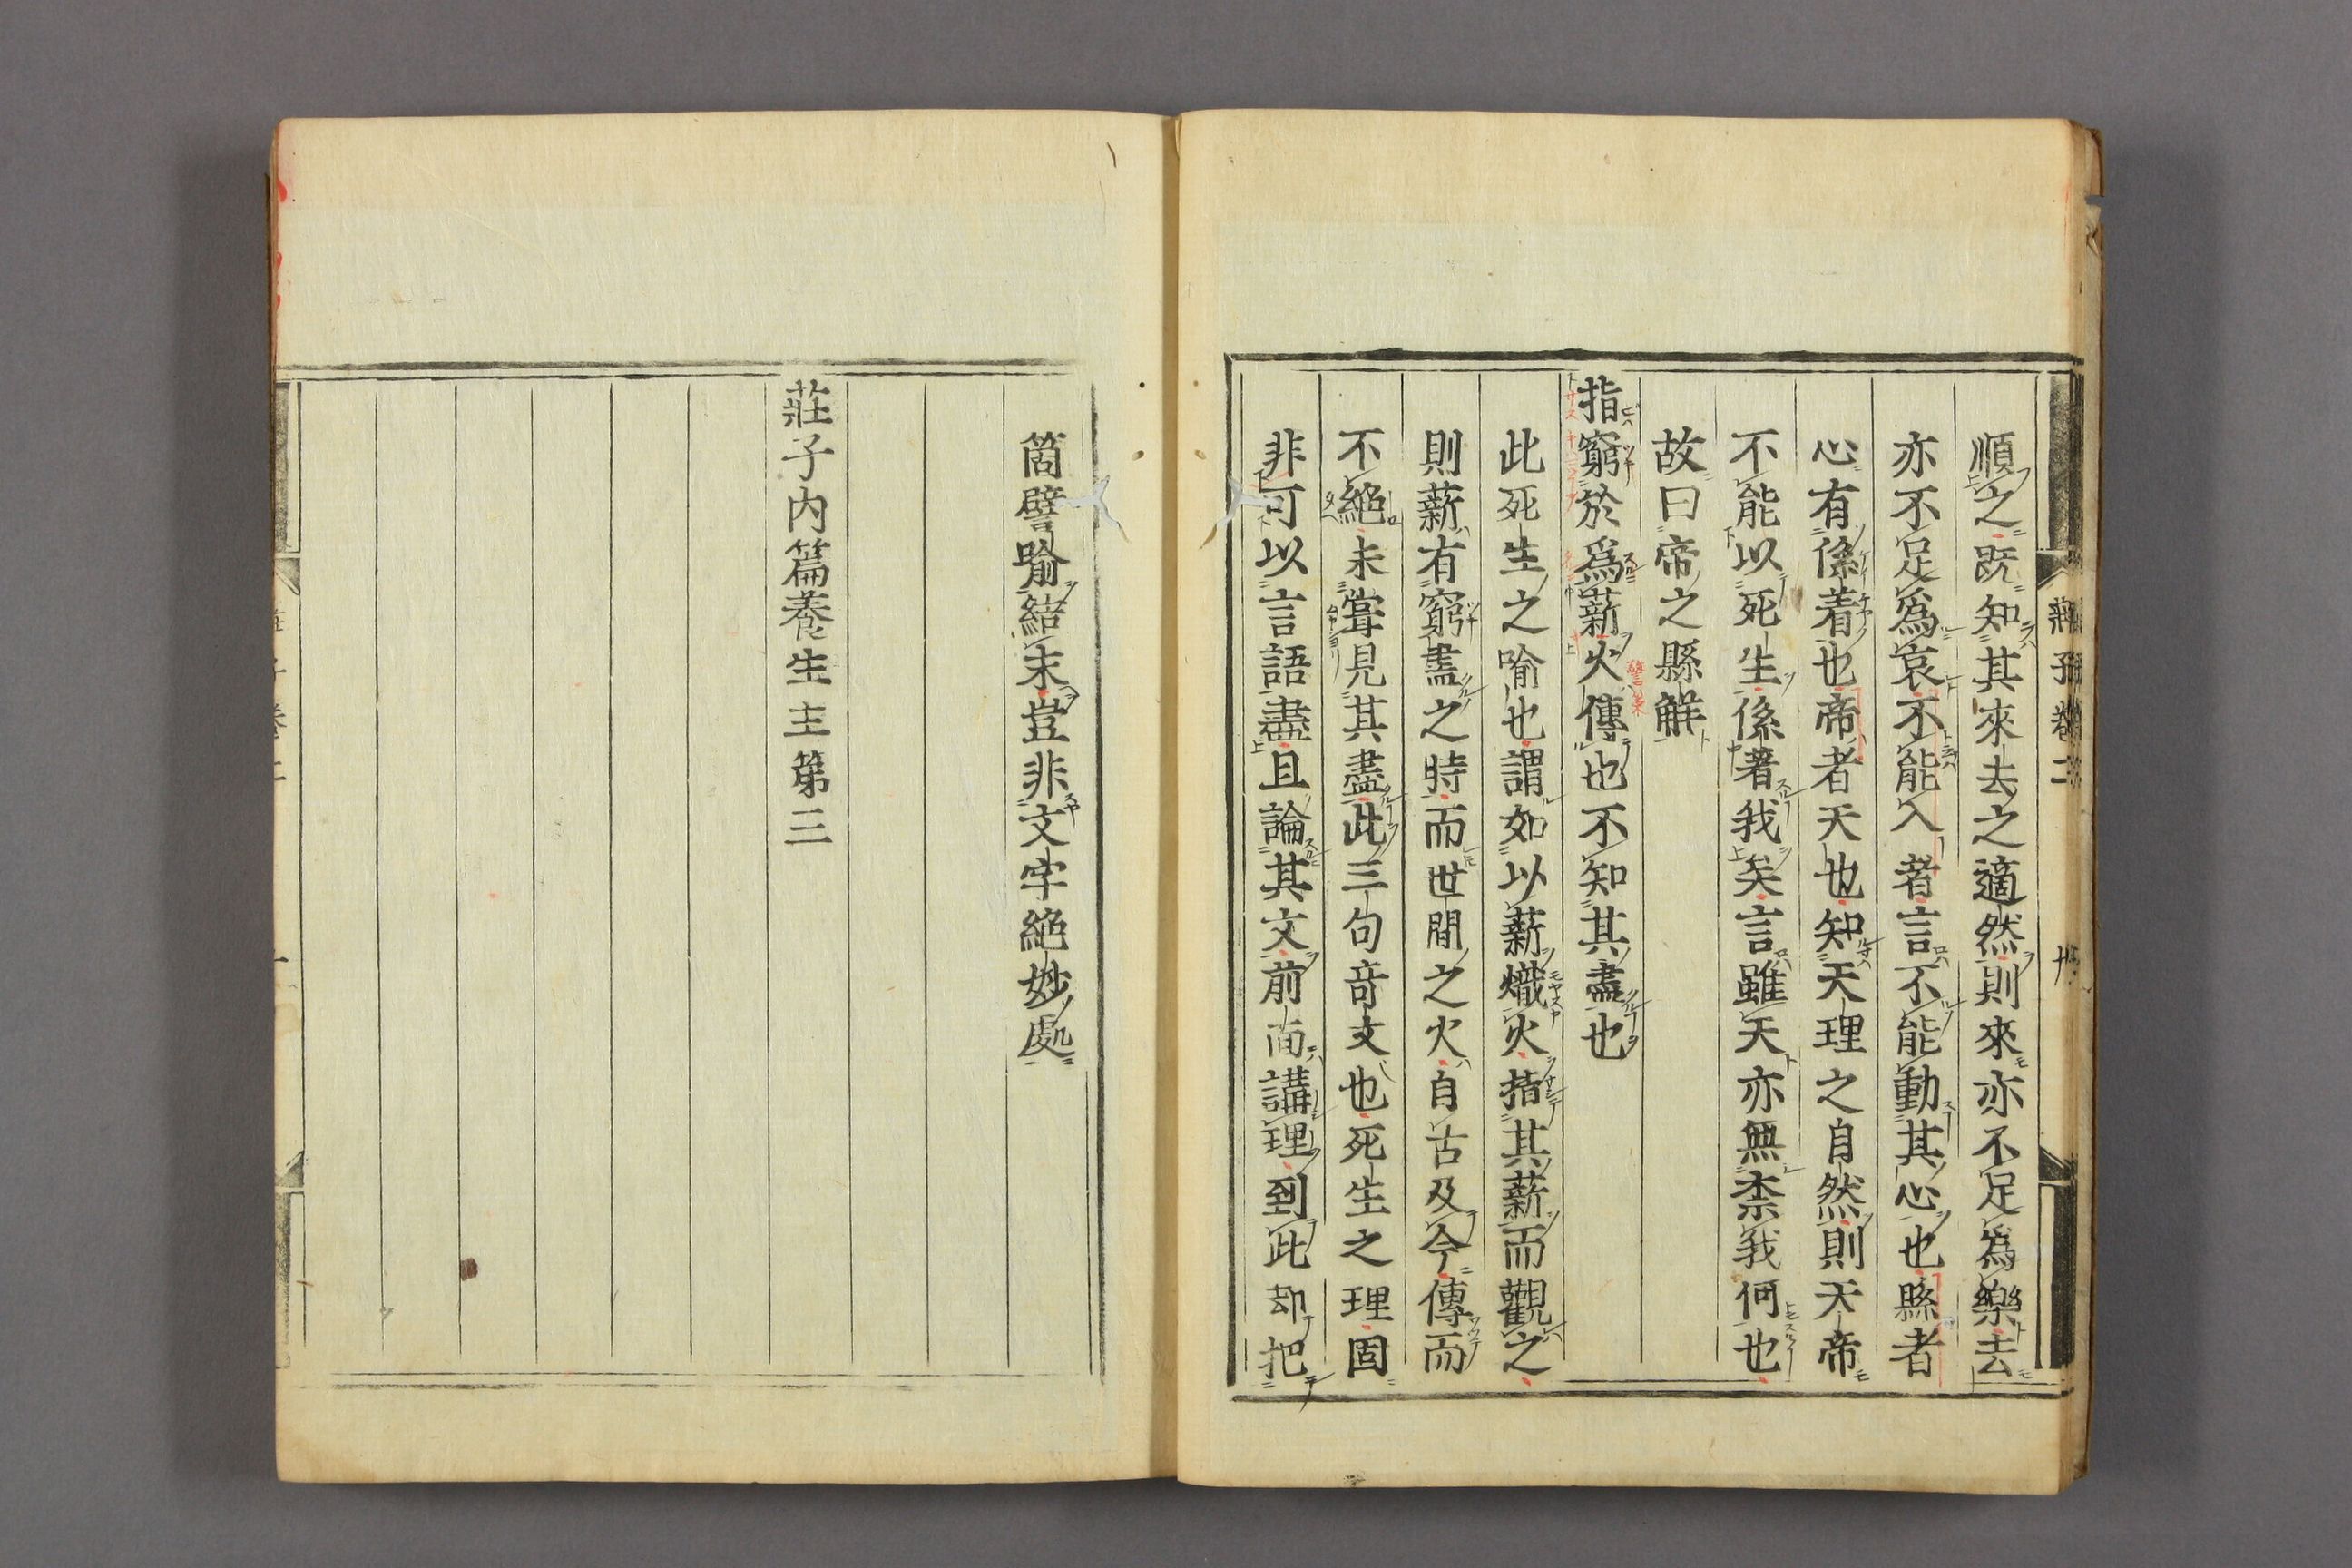 順之既知其來去之適然則來亦不足爲樂去
亦不足爲哀不能入者言不能動其心也縣者
心有係着也帝者天也知天理之自然則天帝
不能以死生係著我矣言雖天亦無柰我何也
故曰帝之縣解
指窮於爲薪火傳也不知其盡也
此死生之喻也謂如以薪熾火指其薪而觀之
則薪有窮盡之時而世間之火自古及今傳而
不絕未甞見其盡此三句竒文也死生之理固
非可以言語盡且論其文前面講理到此却把
箇譬喻結末豈非文字絕妙處
莊子內篇養生主第三